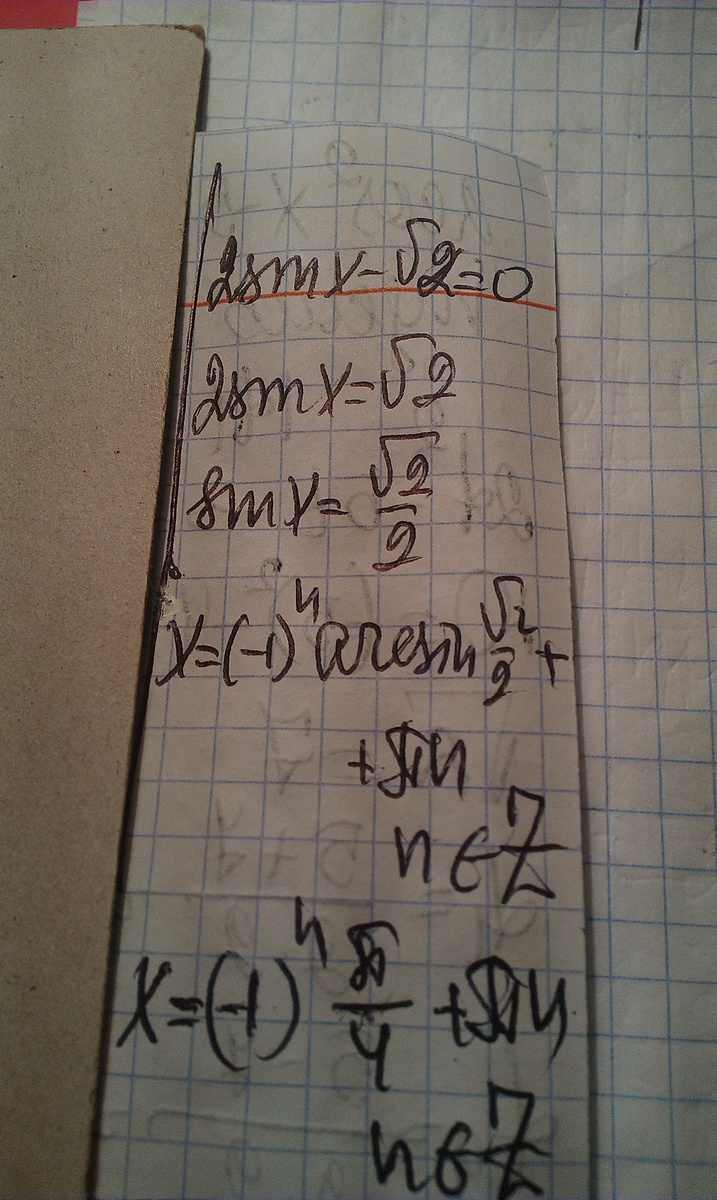 2sinx-√2=0
2sinx=√2
sinx=√2/2
x=(-1)ⁿarcsin√2/2+
+πn
n∈Z
x=(-1)ⁿπ/4+πn
n∈Z